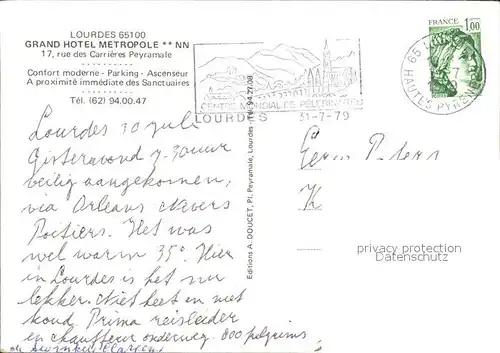 LOURDES 65100
GRAND HOTEL METROPOLE ** NN
17, rue des Carrières Peyramale
Confort moderne - Parking - Ascenseur
A proximité immédiate des Sanctuaires
Tél. (62) 94.00.47
Lourdes 30 juli
Gisteravond 7.30 uur
veilig aangekomen,
via Orleans Nevers
Poitiers. Het was
wel warm 35°. Hier
in Lourdes is het nu
lekker. Niet heet en niet
koud Prima reisleider
en chauffeur onderweg. 800 pelgrims
Editions A. DOUCET, Pl. Peyramale, Lourdes - Tél. 94.27.08
CENTRE MONDIAL DE PÈLERINAGES
LOURDES 31-7-79
FRANCE 1,00
65
HAUTES PYRENEES
privacy protection
Datenschutz